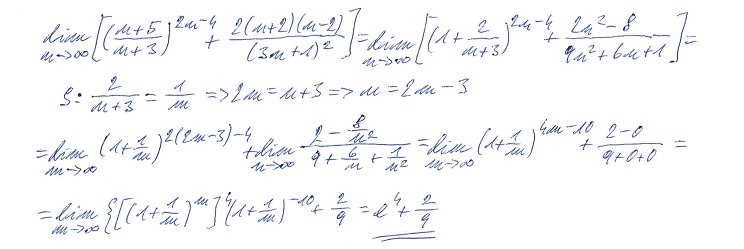 lim n→∞ [((n+5)/(n+3))^(2n-4) + 2(n+2)(n-2)/(3n+1)^2] = lim n→∞ [(1+2/(n+3))^(2n-4) + (2n^2-8)/(9n^2+6n+1)] =
S: 2/(n+3) = 1/m => 2m = n+3 => n = 2m-3
= lim m→∞ (1+1/m)^(2(2m-3)-4) + lim n→∞ (2 - 8/n^2)/(9 + 6/n + 1/n^2) = lim m→∞ (1+1/m)^(4m-10) + (2-0)/(9+0+0) =
= lim m→∞ {[(1+1/m)^m]^4 (1+1/m)^(-10) + 2/9 = e^4 + 2/9